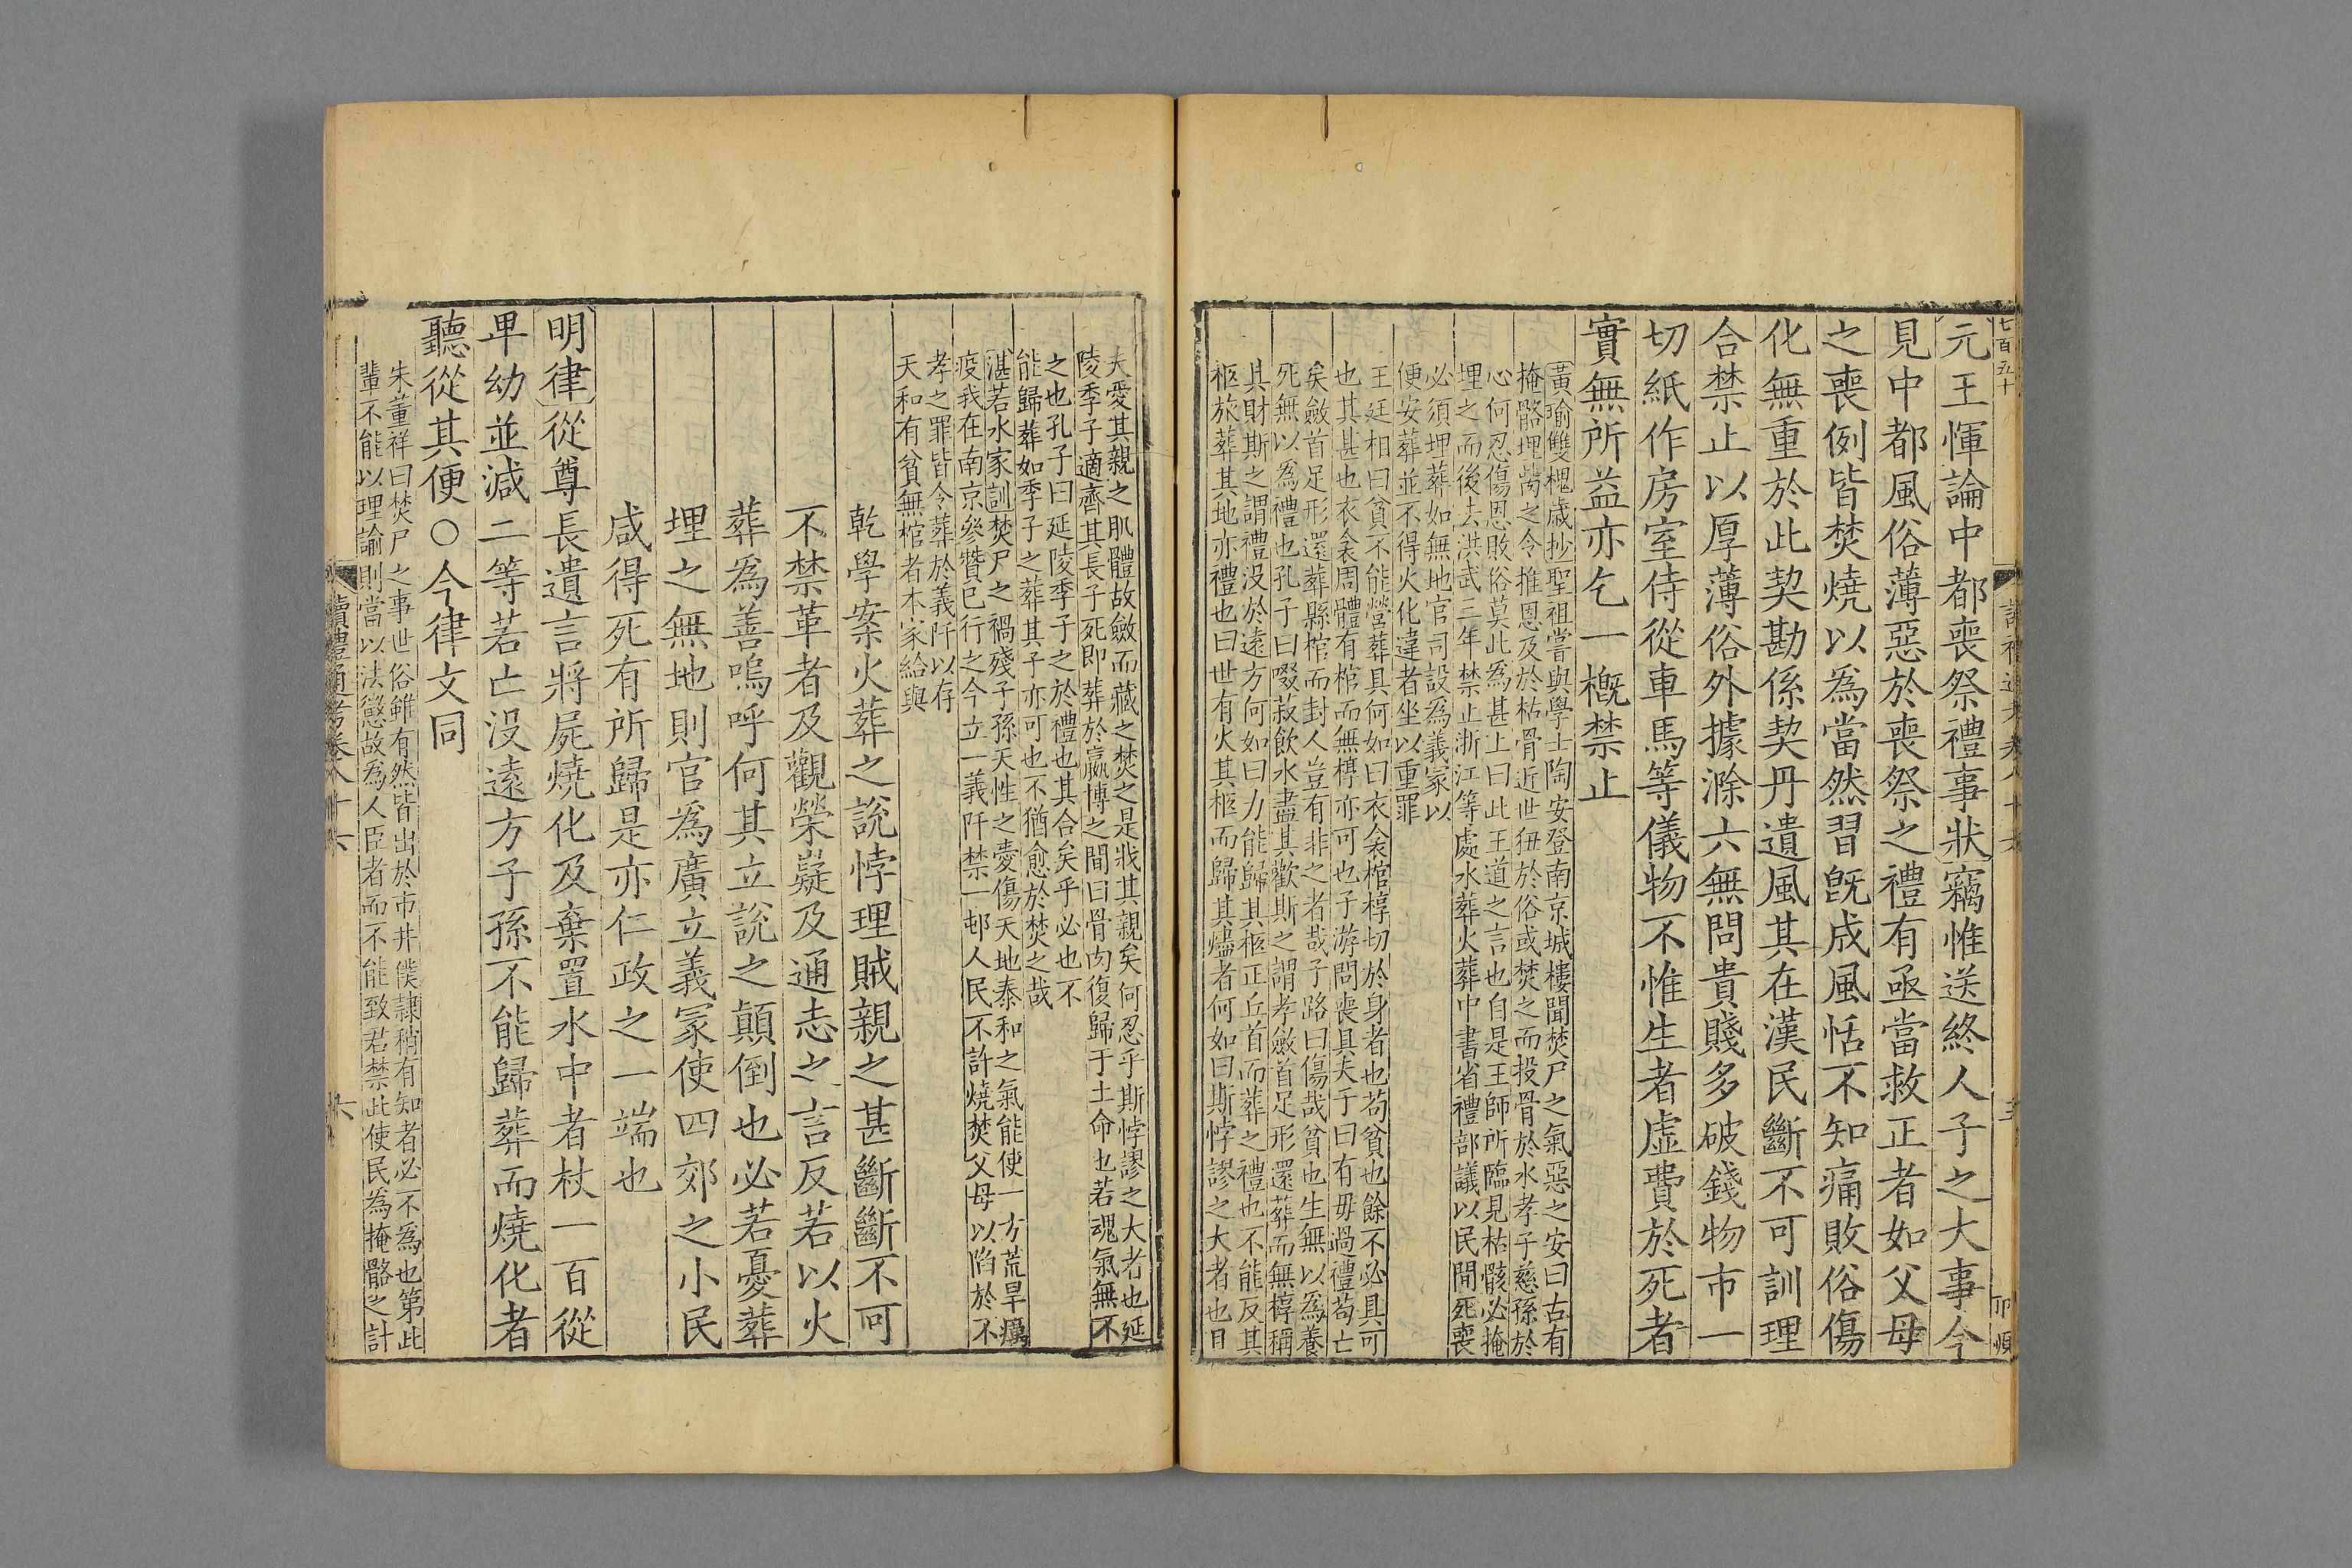 七百五十
讀禮通考卷八十六
元王惲論中都喪祭禮事狀竊惟送終人子之大事今
見中都風俗薄惡於喪祭之禮有亟當救正者如父母
之喪例皆焚燒以為當然習旣成風恬不知痛敗俗傷
化無重於此契勘係契丹遺風其在漢民斷不可訓理
合禁止以厚薄俗外據滁六無問貴賤多破錢物市一
切紙作房室侍從車馬等儀物不惟生者虛費於死者
實無所益亦乞一槪禁止
黃瑜雙槐歲抄聖祖嘗與學士陶安登南京城樓聞焚尸之氣惡之安曰古有
掩骼埋胔之令推恩及於枯骨近世狃於俗或焚之而投骨於水孝子慈孫於
心何忍傷恩敗俗莫此為甚上曰此王道之言也自是王師所臨見枯骸必掩
埋之而後去洪武三年禁止浙江等處水葬火葬中書省禮部議以民間死喪
必須埋葬如無地官司設為義冢以
便安葬並不得火化違者坐以重罪
王廷相曰貧不能營葬具何如曰衣衾棺椁切於身者也苟貧也餘不必具可
也其甚也衣衾周體有棺而無椁亦可也子游問喪具夫子曰有毋過禮苟亡
矣斂首足形還葬縣棺而封人豈有非之者哉子路曰傷哉貧也生無以為養
死無以為禮也孔子曰啜菽飲水盡其歡斯之謂孝斂首足形還葬而無椁稱
其財斯之謂禮没於遠方何如曰力能歸其柩正丘首而葬之禮也不能反其
柩旅葬其地亦禮也曰世有火其柩而歸其燼者何如曰斯悖謬之大者也曰
夫愛其親之肌體故斂而藏之焚之是戕其親矣何忍乎斯悖謬之大者也延
陵季子適齊其長子死即葬於嬴博之間曰骨肉復歸于土命也若魂氣無不
之也孔子曰延陵季子之於禮也其合矣乎必也不
能歸葬如季子之葬其子亦可也不猶愈於焚之哉
湛若水家訓焚尸之禍殘子孫天性之愛傷天地泰和之氣能使一方荒旱癘
疫我在南京參贊已行之今立一義阡禁一邨人民不許燒焚父母以陷於不
孝之罪皆令葬於義阡以存
天和有貧無棺者本家給與
乾學案火葬之說悖理賊親之甚斷斷不可
不禁革者及觀榮嶷及通志之言反若以火
葬為善嗚呼何其立說之顛倒也必若憂葬
埋之無地則官為廣立義冢使四郊之小民
咸得死有所歸是亦仁政之一端也
明律從尊長遺言將屍燒化及棄置水中者杖一百從
卑幼並減二等若亡没遠方子孫不能歸葬而燒化者
聽從其便○今律文同
朱董祥曰焚尸之事世俗雖有然皆出於市井僕隷稍有知者必不為也第此
輩不能以理諭則當以法懲故為人臣者而不能致君禁此使民為掩骼之計
讀禮通考卷八十六
六